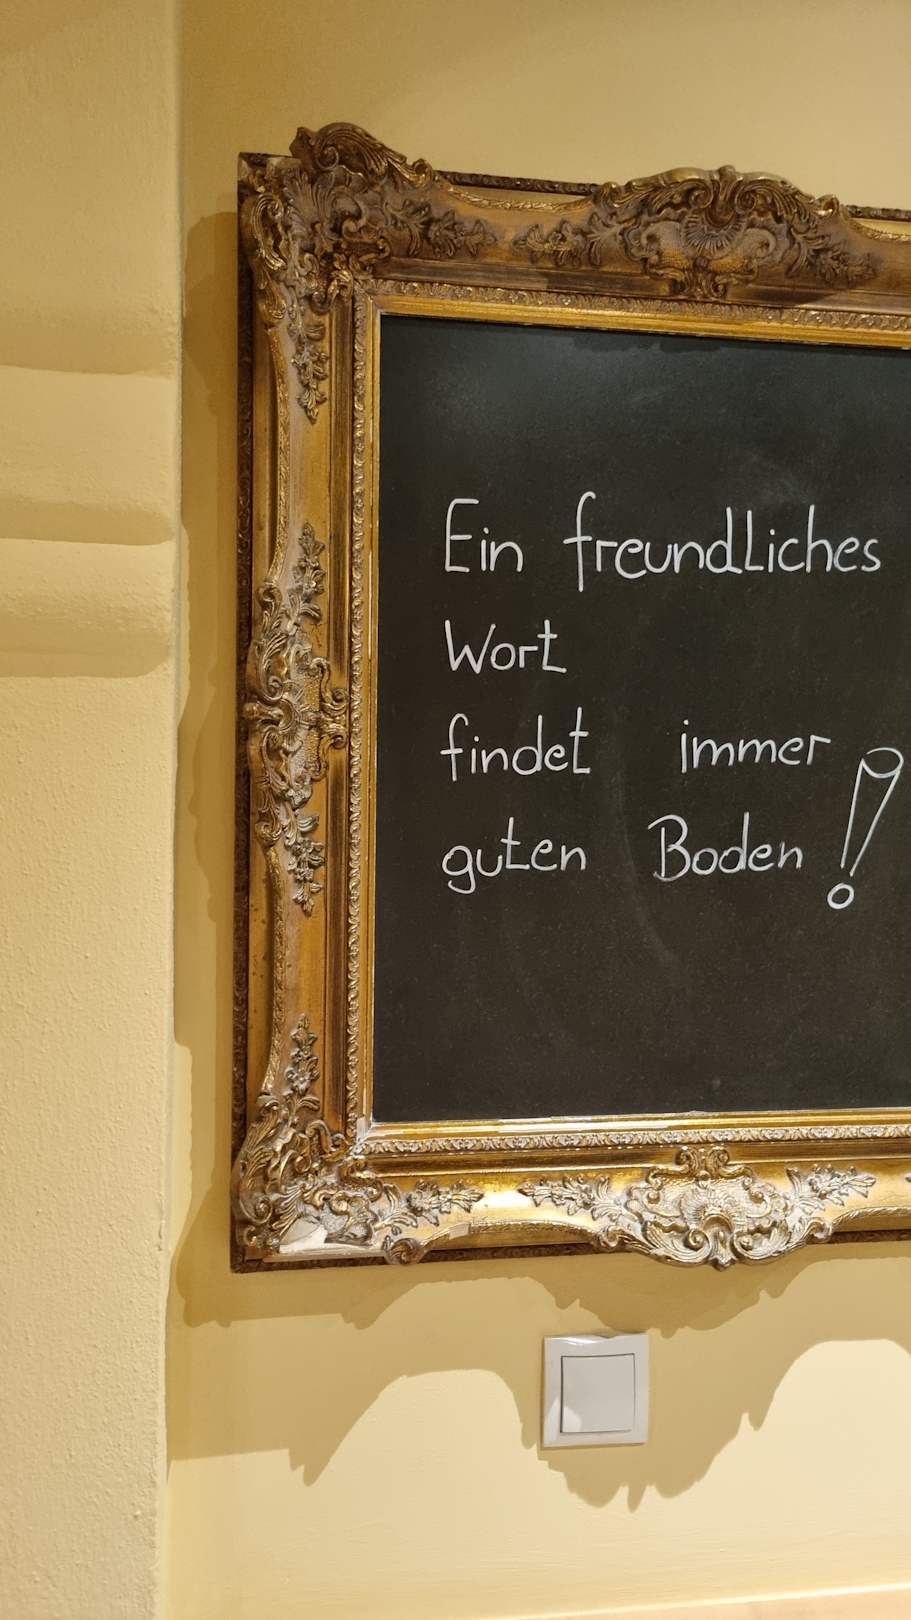 Ein freundliches
Wort
findet immer
guten Boden!